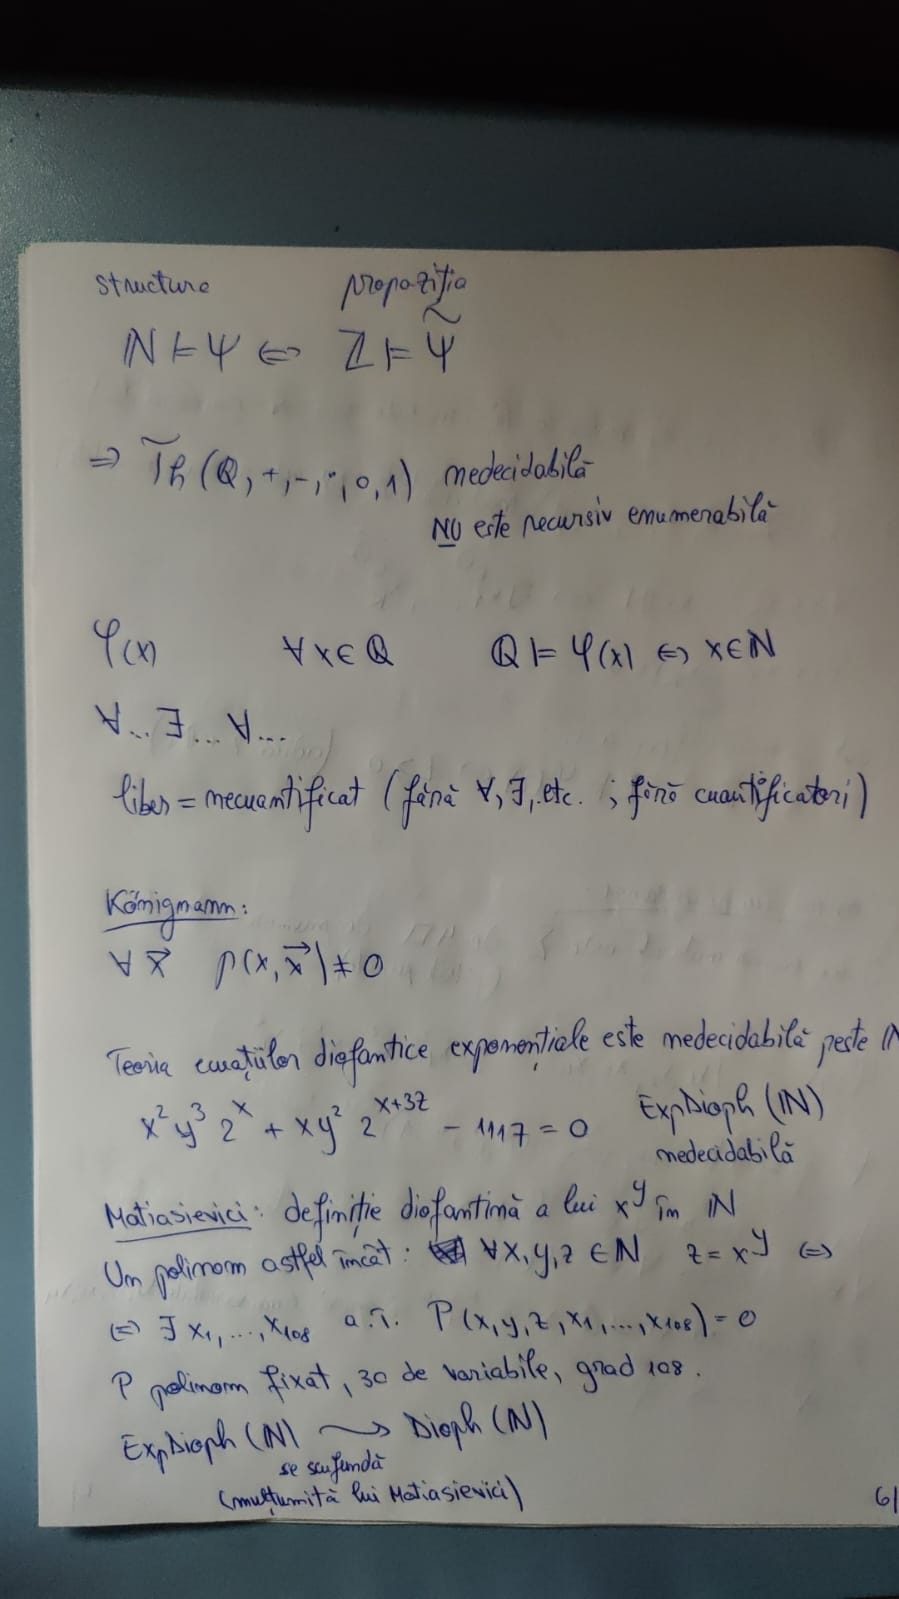 structure propoziția
ℕ ⊨ Ψ ⇔ ℤ ⊨ Ψ̃
⇒ T̃h (ℚ, +, -, ·, 0, 1) nedecidabilă
NU este recursiv enumerabilă
φ(x) ∀x∈ℚ ℚ ⊨ φ(x) ⇔ x∈ℕ
∀...∃...∀...
liber = necuantificat (fără ∀, ∃, etc. ; fără cuantificatori)
Königmann:
∀x⃗ p(x, x⃗) ≠ 0
Teoria ecuațiilor diofantice exponențiale este nedecidabilă peste ℕ
x² y³ 2ˣ + xy² 2ˣ⁺³ᶻ - 1117 = 0 ExpDioph (ℕ)
nedecidabilă
Matiasievici: definiție diofantină a lui xʸ în ℕ
Un polinom astfel încât: ∀x,y,z ∈ ℕ z = xʸ ⇔
⇔ ∃ x₁, ..., x₁₀₈ a.î. P(x, y, z, x₁, ..., x₁₀₈) = 0
P polinom fixat, 30 de variabile, grad 108.
ExpDioph (ℕ) ⇝ Dioph (ℕ)
se scufundă
(mulțumită lui Matiasievici)
6/